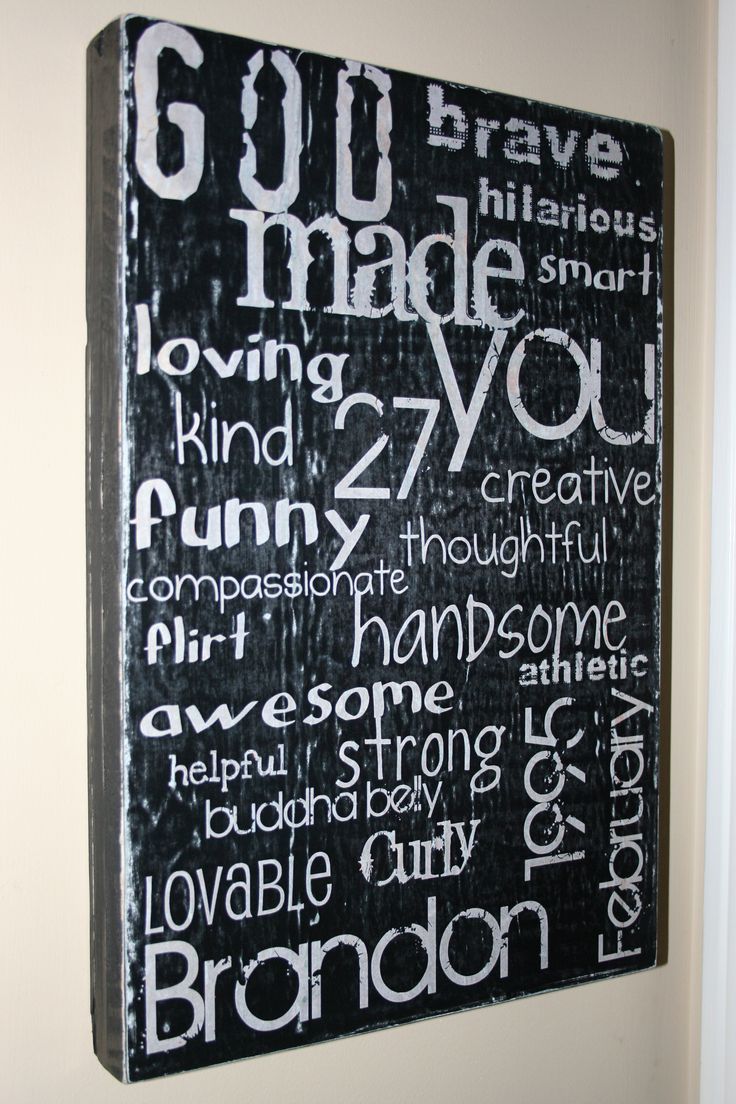 GOD
brave
hilarious
made
smart
you
loving
kind
27
creative
funny
thoughtful
compassionate
handsome
flirt
athletic
awesome
strong
helpful
buddha belly
1995
February
Curly
Lovable
Brandon